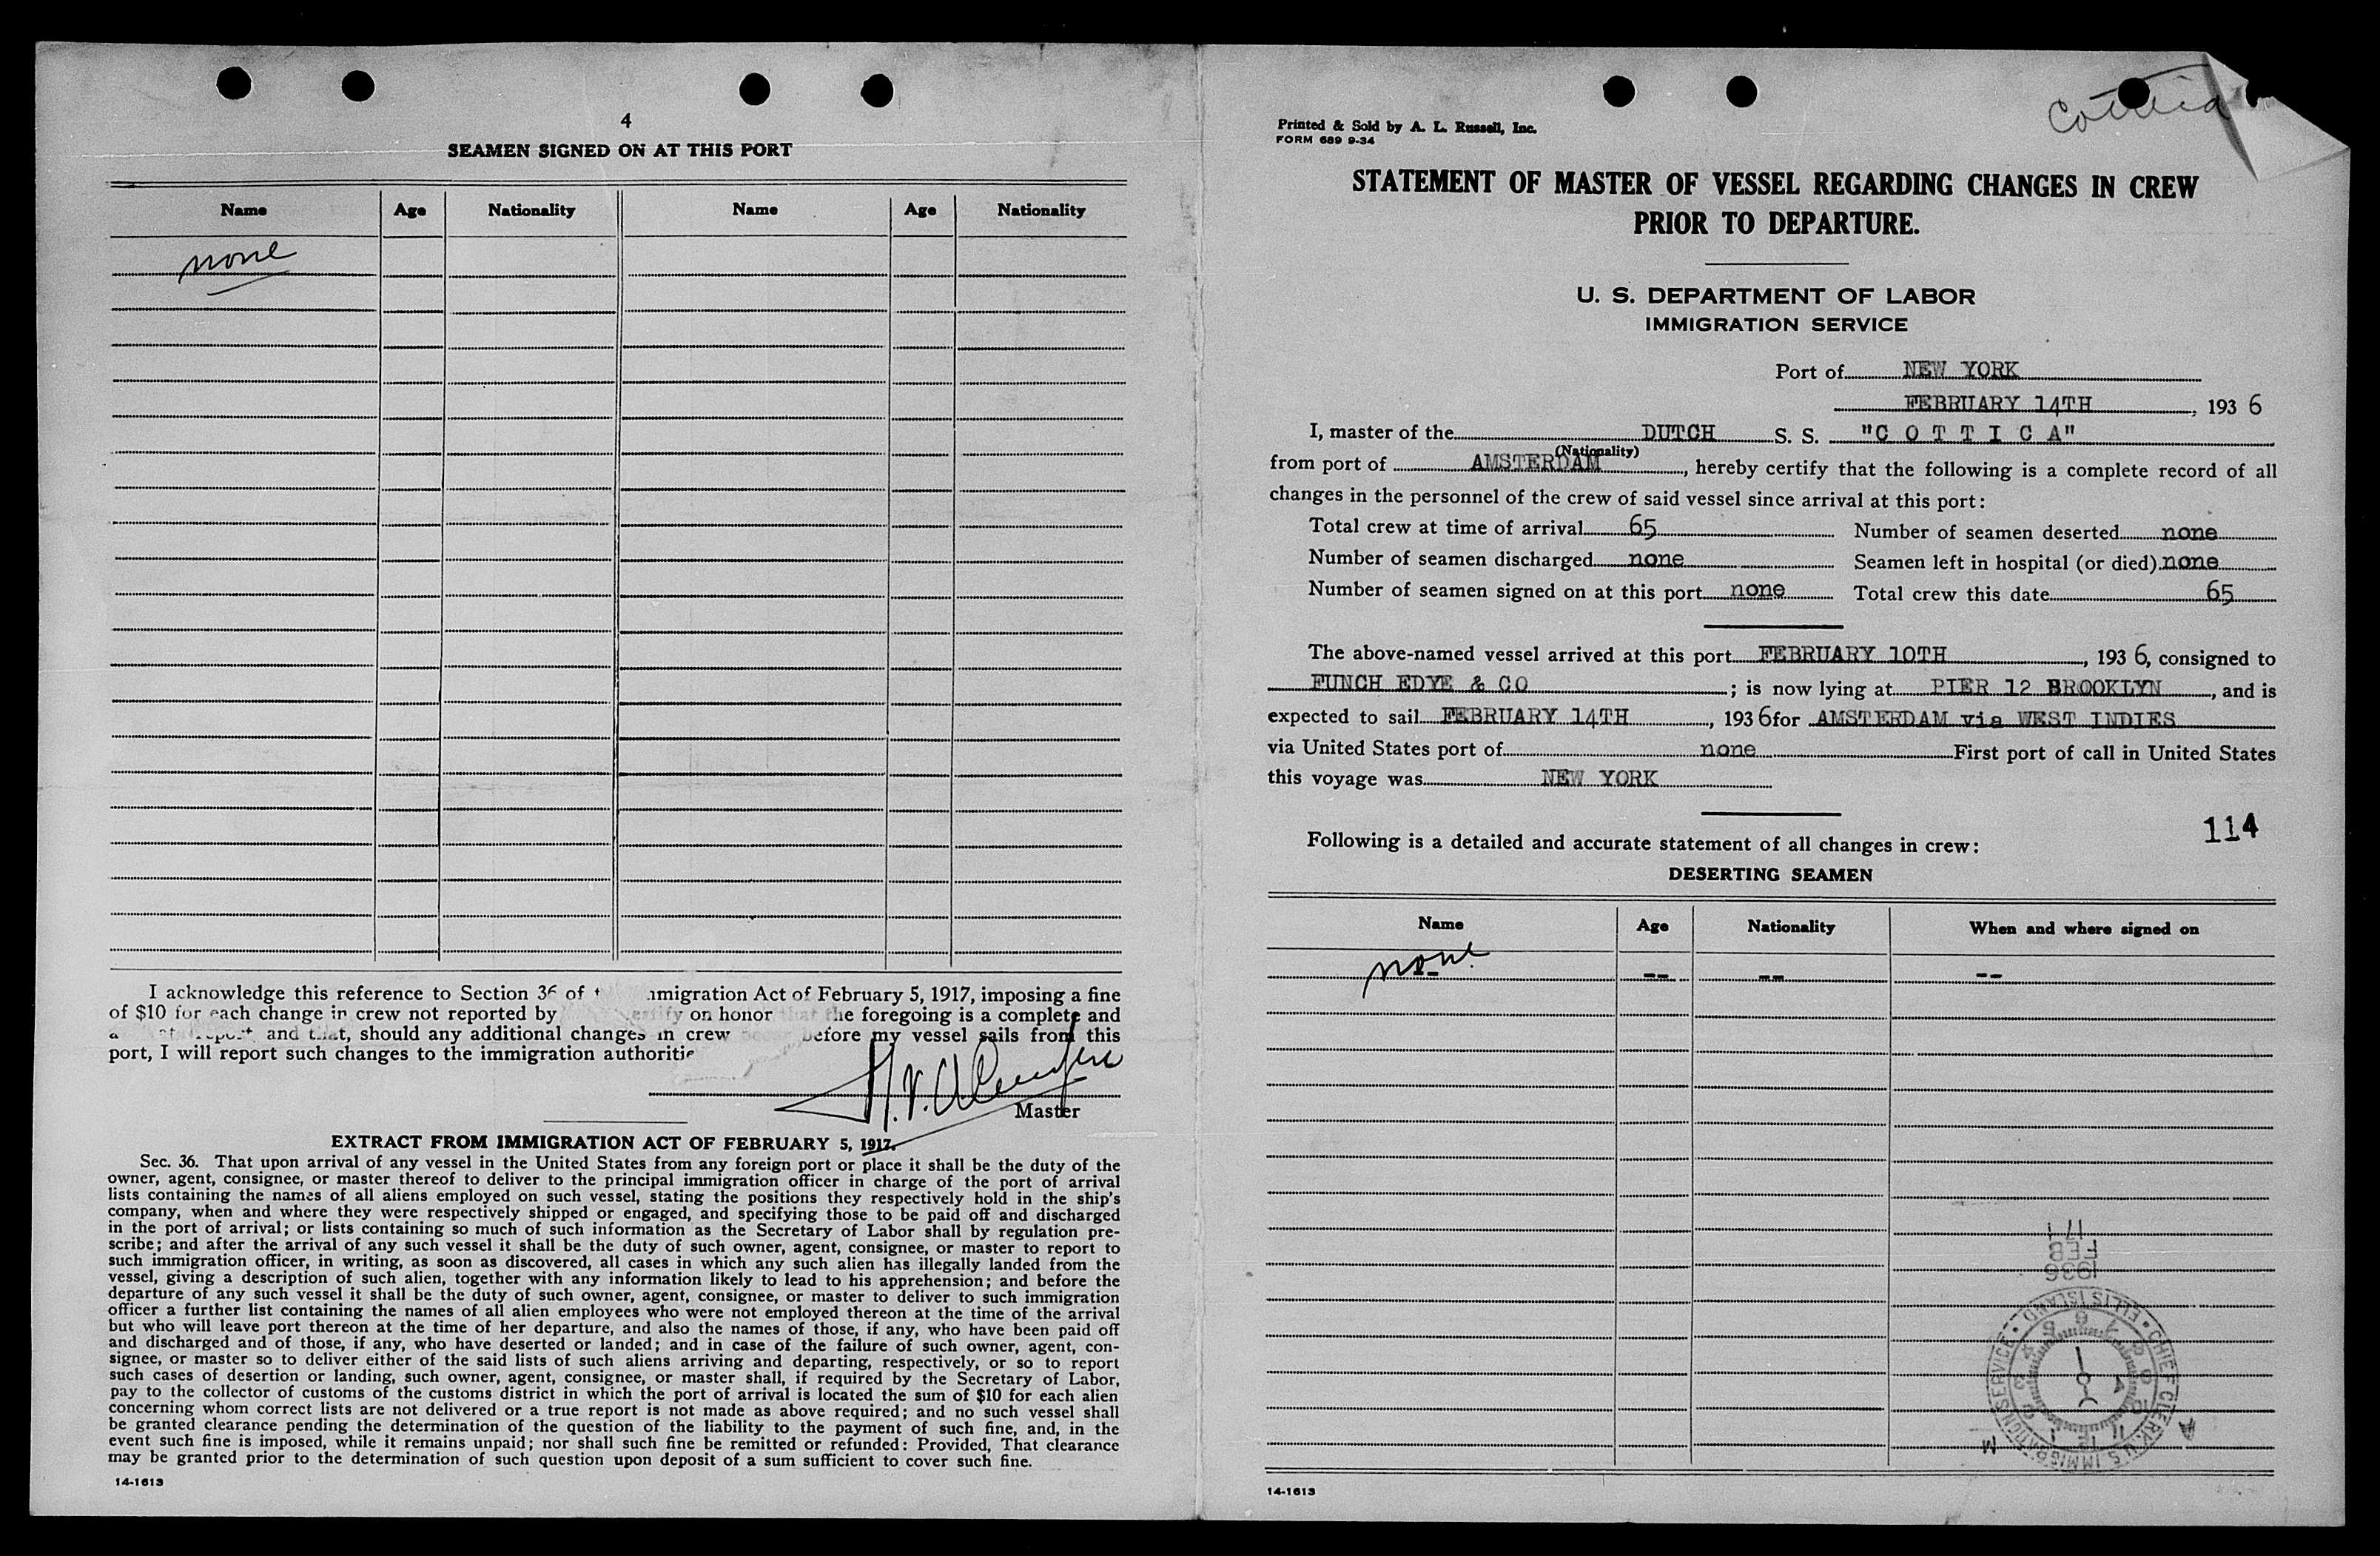 4
SEAMEN SIGNED ON AT THIS PORT
Name Age Nationality Name Age Nationality
none
I acknowledge this reference to Section 36 of migration Act of February 5, 1917, imposing a fine
of $10 for each change in crew not reported by certify on honor that the foregoing is a complete and
and that, should any additional changes in crew occur before my vessel sails from this
port, I will report such changes to the immigration authorities
Master
EXTRACT FROM IMMIGRATION ACT OF FEBRUARY 5, 1917.
Sec. 36. That upon arrival of any vessel in the United States from any foreign port or place it shall be the duty of the
owner, agent, consignee, or master thereof to deliver to the principal immigration officer in charge of the port of arrival
lists containing the names of all aliens employed on such vessel, stating the positions they respectively hold in the ship's
company, when and where they were respectively shipped or engaged, and specifying those to be paid off and discharged
in the port of arrival; or lists containing so much of such information as the Secretary of Labor shall by regulation pre-
scribe; and after the arrival of any such vessel it shall be the duty of such owner, agent, consignee, or master to report to
such immigration officer, in writing, as soon as discovered, all cases in which any such alien has illegally landed from the
vessel, giving a description of such alien, together with any information likely to lead to his apprehension; and before the
departure of any such vessel it shall be the duty of such owner, agent, consignee, or master to deliver to such immigration
officer a further list containing the names of all alien employees who were not employed thereon at the time of the arrival
but who will leave port thereon at the time of her departure, and also the names of those, if any, who have been paid off
and discharged and of those, if any, who have deserted or landed; and in case of the failure of such owner, agent, con-
signee, or master so to deliver either of the said lists of such aliens arriving and departing, respectively, or so to report
such cases of desertion or landing, such owner, agent, consignee, or master shall, if required by the Secretary of Labor,
pay to the collector of customs of the customs district in which the port of arrival is located the sum of $10 for each alien
concerning whom correct lists are not delivered or a true report is not made as above required; and no such vessel shall
be granted clearance pending the determination of the question of the liability to the payment of such fine, and, in the
event such fine is imposed, while it remains unpaid; nor shall such fine be remitted or refunded: Provided, That clearance
may be granted prior to the determination of such question upon deposit of a sum sufficient to cover such fine.
14-1613
Cottica
Printed & Sold by A. L. Russell, Inc.
FORM 689 9-34
STATEMENT OF MASTER OF VESSEL REGARDING CHANGES IN CREW
PRIOR TO DEPARTURE.
U. S. DEPARTMENT OF LABOR
IMMIGRATION SERVICE
Port of NEW YORK
FEBRUARY 14TH, 193 6
I, master of the DUTCH S. S. "C O T T I C A"
(Nationality)
from port of AMSTERDAM, hereby certify that the following is a complete record of all
changes in the personnel of the crew of said vessel since arrival at this port:
Total crew at time of arrival 65 Number of seamen deserted none
Number of seamen discharged none Seamen left in hospital (or died) none
Number of seamen signed on at this port none Total crew this date 65
The above-named vessel arrived at this port FEBRUARY 10TH, 193 6, consigned to
FUNCH EDYE & CO; is now lying at PIER 12 BROOKLYN, and is
expected to sail FEBRUARY 14TH, 193 6 for AMSTERDAM via WEST INDIES
via United States port of none First port of call in United States
this voyage was NEW YORK
114
Following is a detailed and accurate statement of all changes in crew:
DESERTING SEAMEN
Name Age Nationality When and where signed on
none -- -- --
FEB
1936
CHIEF CLERK U.S. IMMIGRATION SERVICE • ELLIS ISLAND •
A M
14-1613